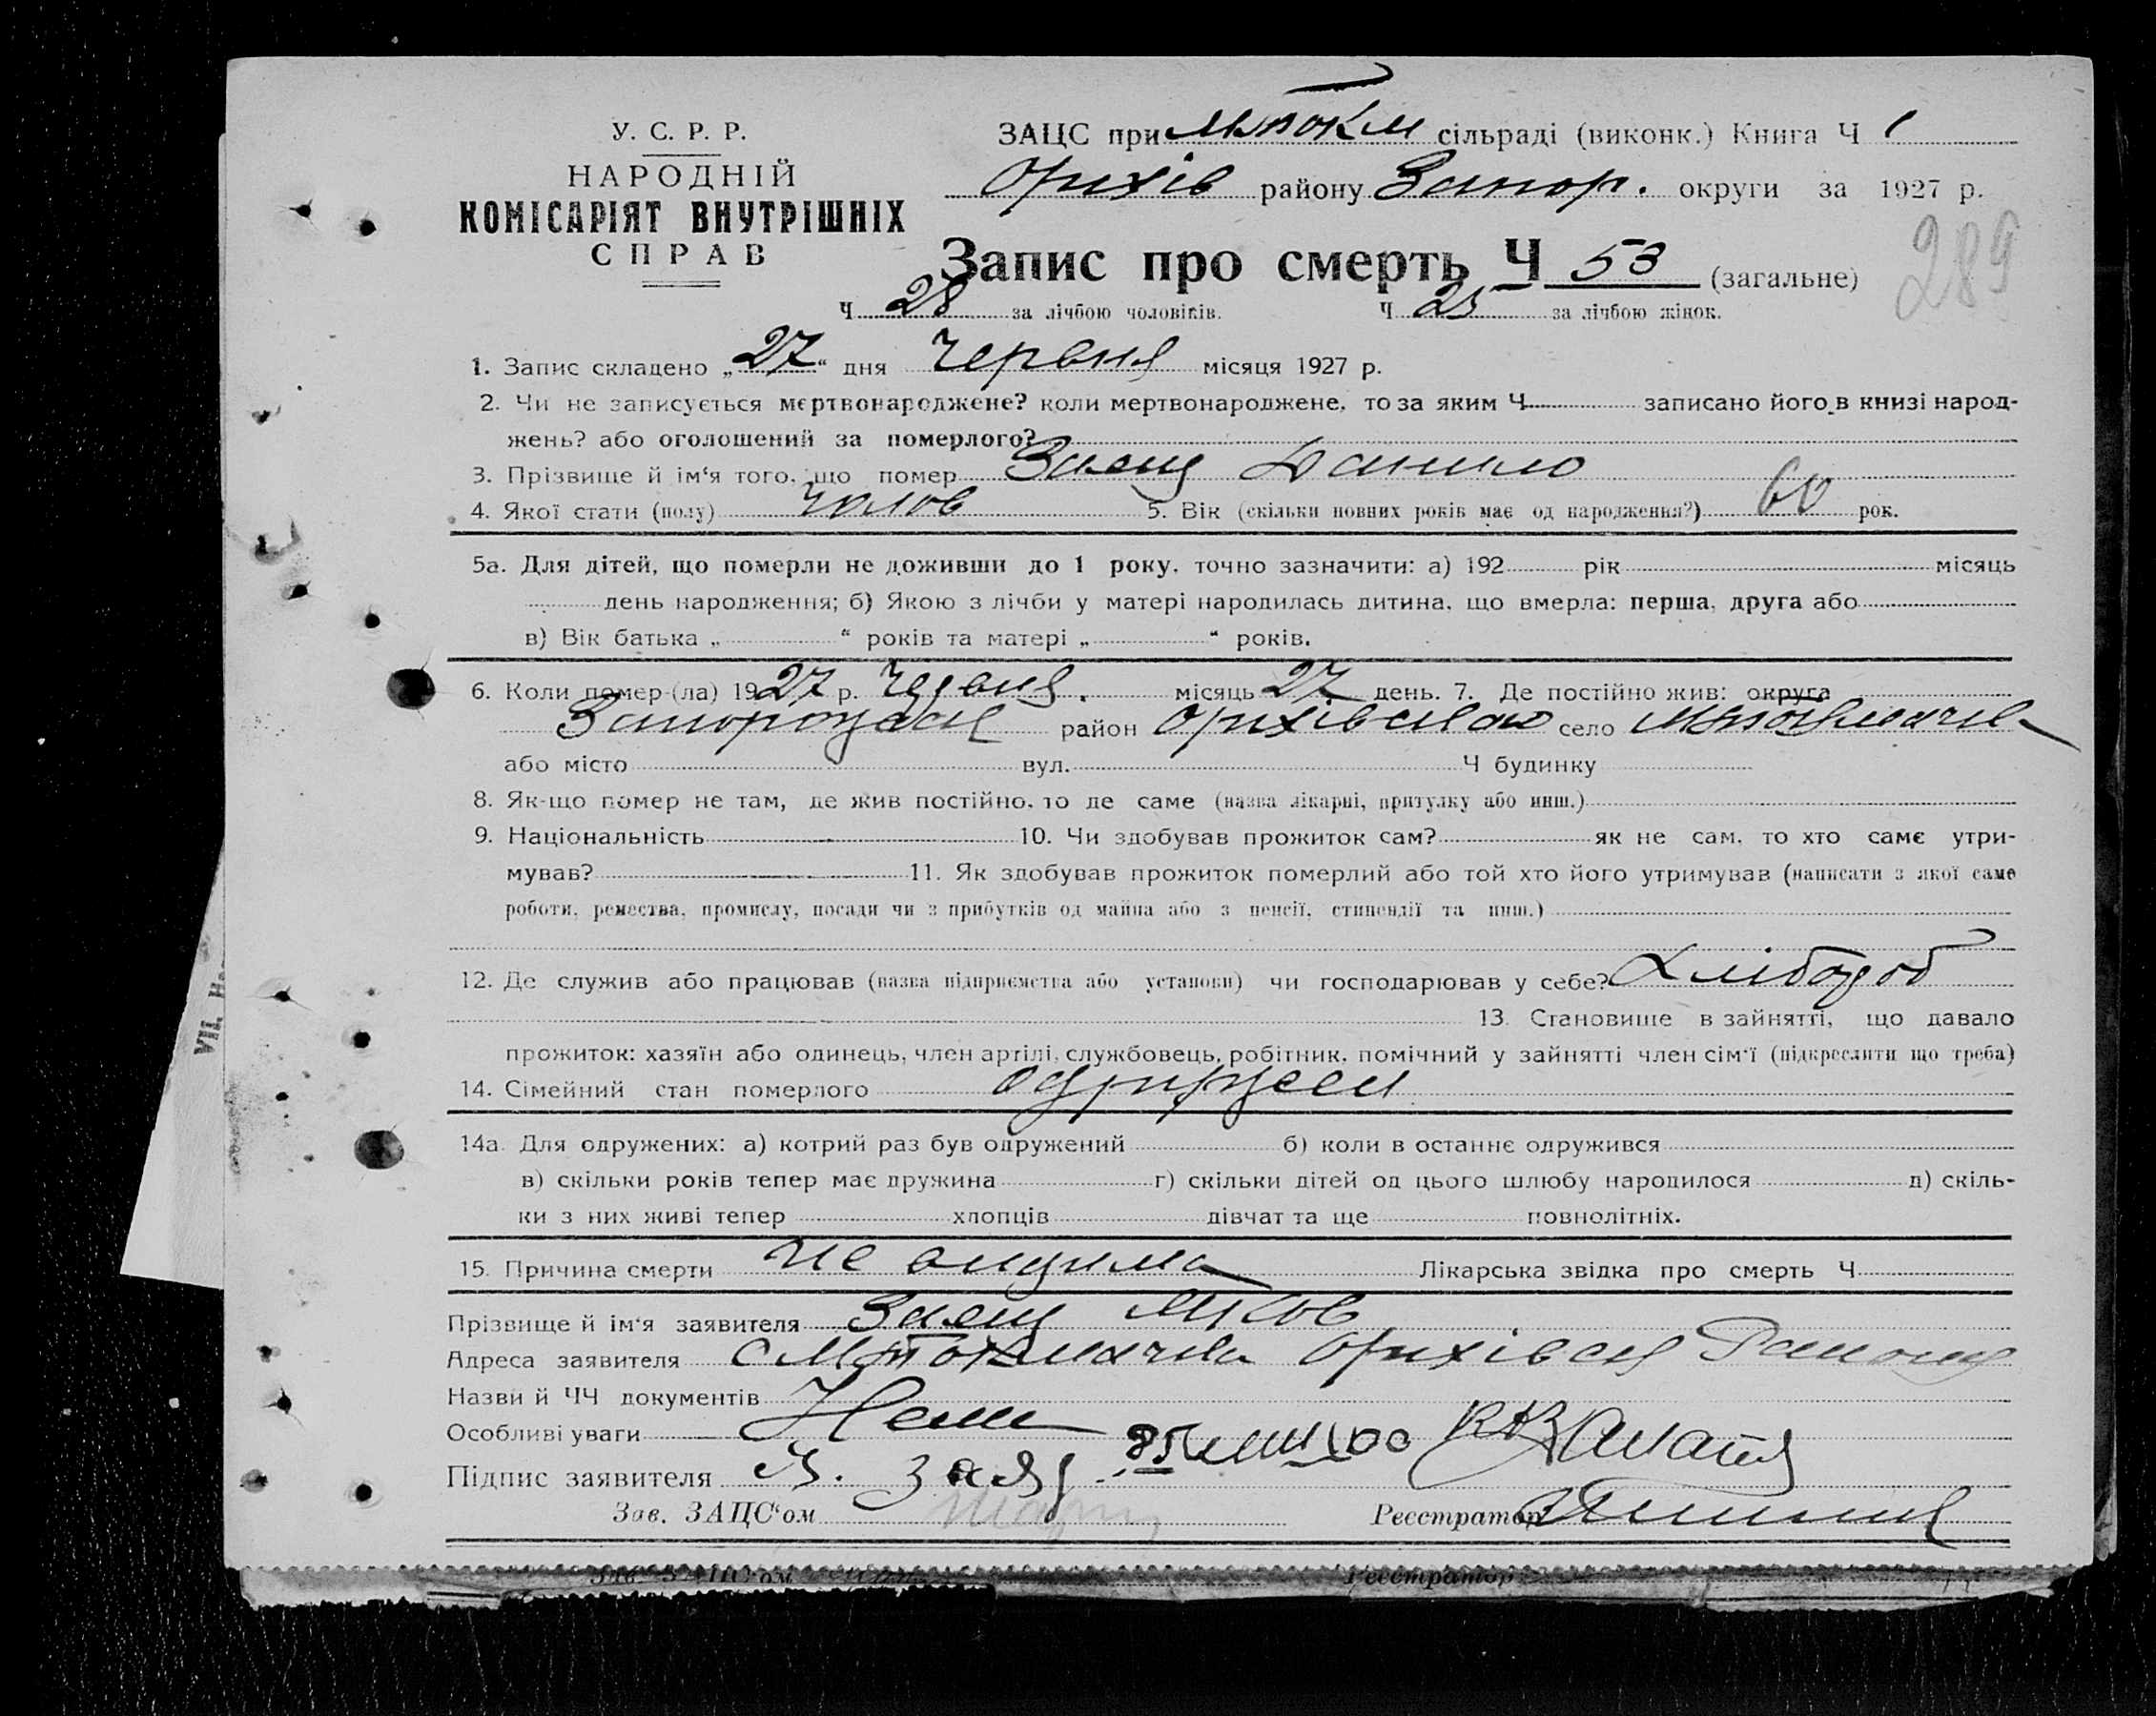 У. С. Р. Р.
НАРОДНІЙ
КОМІСАРІЯТ ВНУТРІШНІХ
СПРАВ
ЗАЦС при МТокм сільраді (виконк.) Книга Ч 1
Оріхів району Запор. округи за 1927 р.
Запис про смерть Ч 53 (загальне)
289
Ч 28 за лічбою чоловіків. Ч 25 за лічбою жінок.
1. Запис складено „27“ дня Червня місяця 1927 р.
2. Чи не записується мертвонароджене? коли мертвонароджене, то за яким Ч записано його в книзі народ-
жень? або оголошений за померлого?
3. Прізвище й ім‘я того, що помер Заєць Данило
4. Якої стати (полу) Чолов 5. Вік (скільки повних років має од народження?) 60 рок.
5а. Для дітей, що померли не доживши до 1 року, точно зазначити: а) 192 рік місяць
день народження; б) Якою з лічби у матері народилась дитина, що вмерла: перша, друга або
в) Вік батька „ “ років та матері „ “ років.
6. Коли помер (ла) 1927 р. Червня місяць 27 день. 7. Де постійно жив: округа
район село
або місто вул. Ч будинку
8. Як-що помер не там, де жив постійно, то де саме (назва лікарні, притулку або инш.)
9. Національність 10. Чи здобував прожиток сам? як не сам, то хто саме утри-
мував? 11. Як здобував прожиток померлий або той хто його утримував (написати з якої саме
роботи, ремества, промислу, посади чи з прибутків од майна або з пенсії, стипендії та инш.)
12. Де служив або працював (назва підприємства або установи) чи господарював у себе? Хлібороб
13. Становище в зайнятті, що давало
прожиток: хазяїн або одинець, член артілі, службовець, робітник, помічний у зайнятті член сім‘ї (підкреслити що треба)
14. Сімейний стан померлого
14а. Для одружених: а) котрий раз був одружений б) коли в останнє одружився
в) скільки років тепер має дружина г) скільки дітей од цього шлюбу народилося д) скіль-
ки з них живі тепер хлопців дівчат та ще повнолітніх.
15. Причина смерти не видима Лікарська звідка про смерть Ч
Прізвище й ім‘я заявителя Заєць Яков
Адреса заявителя
Назви й ЧЧ документів
Особливі уваги Нема
Підпис заявителя
Зав. ЗАЦС‘ом Реєстратор
Зав. ЗАЦС‘ом Реєстратор